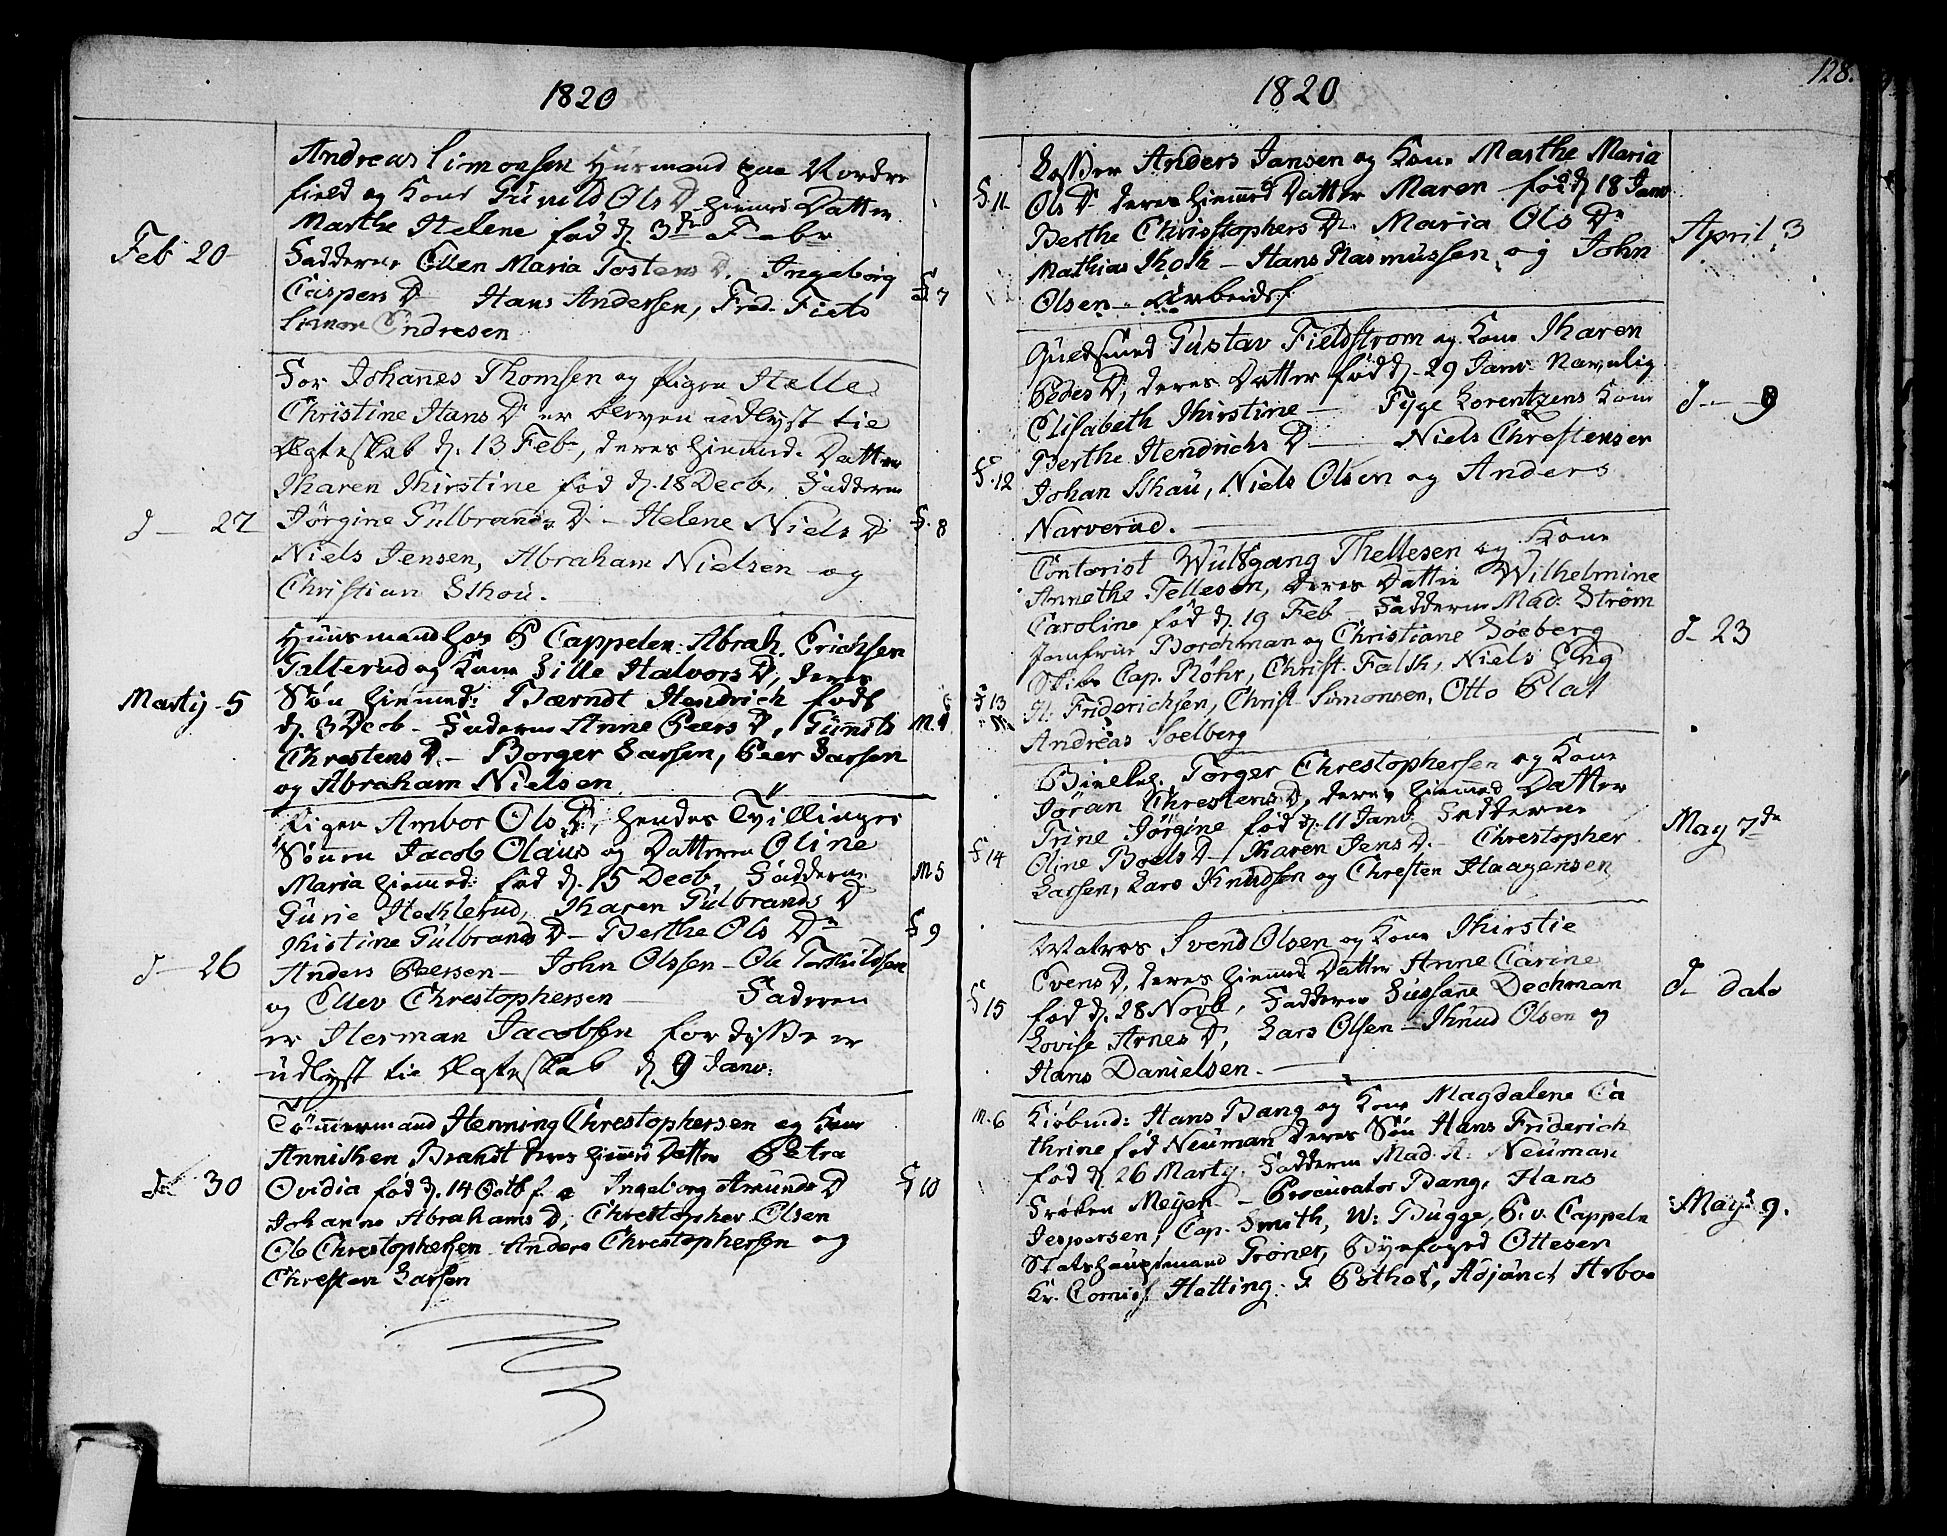 1820
Andreas Simonsen Huusmand paa Nordre
field og Kone Gunild Ols D. hiemed: Datter
Marthe Helene fød d. 3de Febr
Feb 20
Fadderne Ellen Maria Tostens D. Ingeborg
Caspers D Hans Andersen, Fred. Fiets
F. 7
Simon Endresen
For Johannes Thomsen og Pigen Helle
Christine Hans D er bleven udlyst til
Ægteskab d. 13 Feb, deres hiemd. Datter
Karen Kirstine fød d. 18 Decb. Fadderne
d — 27
Jørgine Gulbrands D. — Helene Niels D
F. 8
Niels Jensen, Abraham Nielsen og
Christian Skou.
Huusmand hos P Cappelen: Abrah. Erichsen
Galterud og Kone Sille Halvors D, deres
Marty 5
Søn hiemed: Bærndt Hendrich født
d. 3 Decb — Fadderne Anne Peers D, Gunnild
M. 4
Chrestens D. — Borger Larsen, Peer Larsen
og Abraham Nielsen
Pigen Ambor Ols D, hendes Tvillinger
Sønnen Jacob Olaus og Datteren Oline
Maria hiemed: fød d. 15 Decb Fadderne
M 5
Gurie Heklerud, Karen Gulbrands D
Kistine Gulbrands D — Berthe Ols Dr
F 9
d — 26
Anders Peersen — John Olssen — Ole Torkildsen
og Ellev Chrestophersen — Faderen
er Herman Jacobsen for disse er
udlyst til Ægteskab d 9 Janv:
Tømmermand Henning Chrestophersen og Kone
Anniken Brandt deres hiemed Datter Petra
d — 30
Ovidia fød d. 14 Octb f. a Ingeborg Amunds D
F 10
Johanne Abrahams D, Chrestopher Olsen
Ole Chrestophersen Anders Chrestophersen og
Chresten Larsen
1820
128.
Losser Anders Jansen og Kone Marthe Maria
F. 11
Ols D deres hiemed Datter Maren fød d 18 Janv
Berthe Christophers D. Maria Ols Dr
April 3
Mathias Kok — Hans Rasmussen og John
Olsen — Arbeidsf
Guldsmed Gustav Fieldstrom og Kone Karen
Peders D, deres Datter fød d. 29 Janv. Navnlig
Elisabeth Kirstine — Tyge Lorentzens Kone
d — 9
Berthe Hendrichs D — Niels Chrestensen
F. 12
Johan Skau, Niels Olsen og Anders
Narverud.
Contorist Wulfgang Thellesen og Kone
Annethe Tellesen, deres Datter Wilhelmine
Caroline fød d. 19 Feb — Fadderne Mad: Strøm
Jomfrue Borchman og Christiane Søeberg
d — 23
Skibs Cap. Röhr, Christ. Falk, Niels Eng
F 13
H. Friderichsen, Christ. Simonsen, Otto Plat
Andreas Soelberg
Torger Chrestophersen og Kone
Jøran Chrestens D, deres hiemed Datter
Trine Jørgine fød d. 11 Janv Fadderne
May 7de
F 14
Oline Boels D — Karen Jens D. — Chrestopher
Larsen, Lars Knudsen og Chresten Haagensen
Matros Svend Olsen og Kone Kirstie
Evens D, deres hiemed Datter Anne Carine
d — dato
F 15
fød d. 28 Novb, Fadderne Sussane Dechman
Lovise Arnes D, Lars Olsen — Knud Olsen og
Hans Danielsen. —
M. 6
Kiøbmd: Hans Bang og Kone Magdalene Ca
thrine fød Neuman deres Søn Hans Friderich
fød d 26 Marty. Fadderne Mad. A: Neuman
Frøken Meyer — Procurator Bang, Hans
May 9.
Jespersen, Cap. Smith, W: Bugge, P. v. Cappeln
Statshauptmand Grøner, Byefoged Ottesen
Kr. Comis. Hetting. F Esthol, Adjünct Arboe